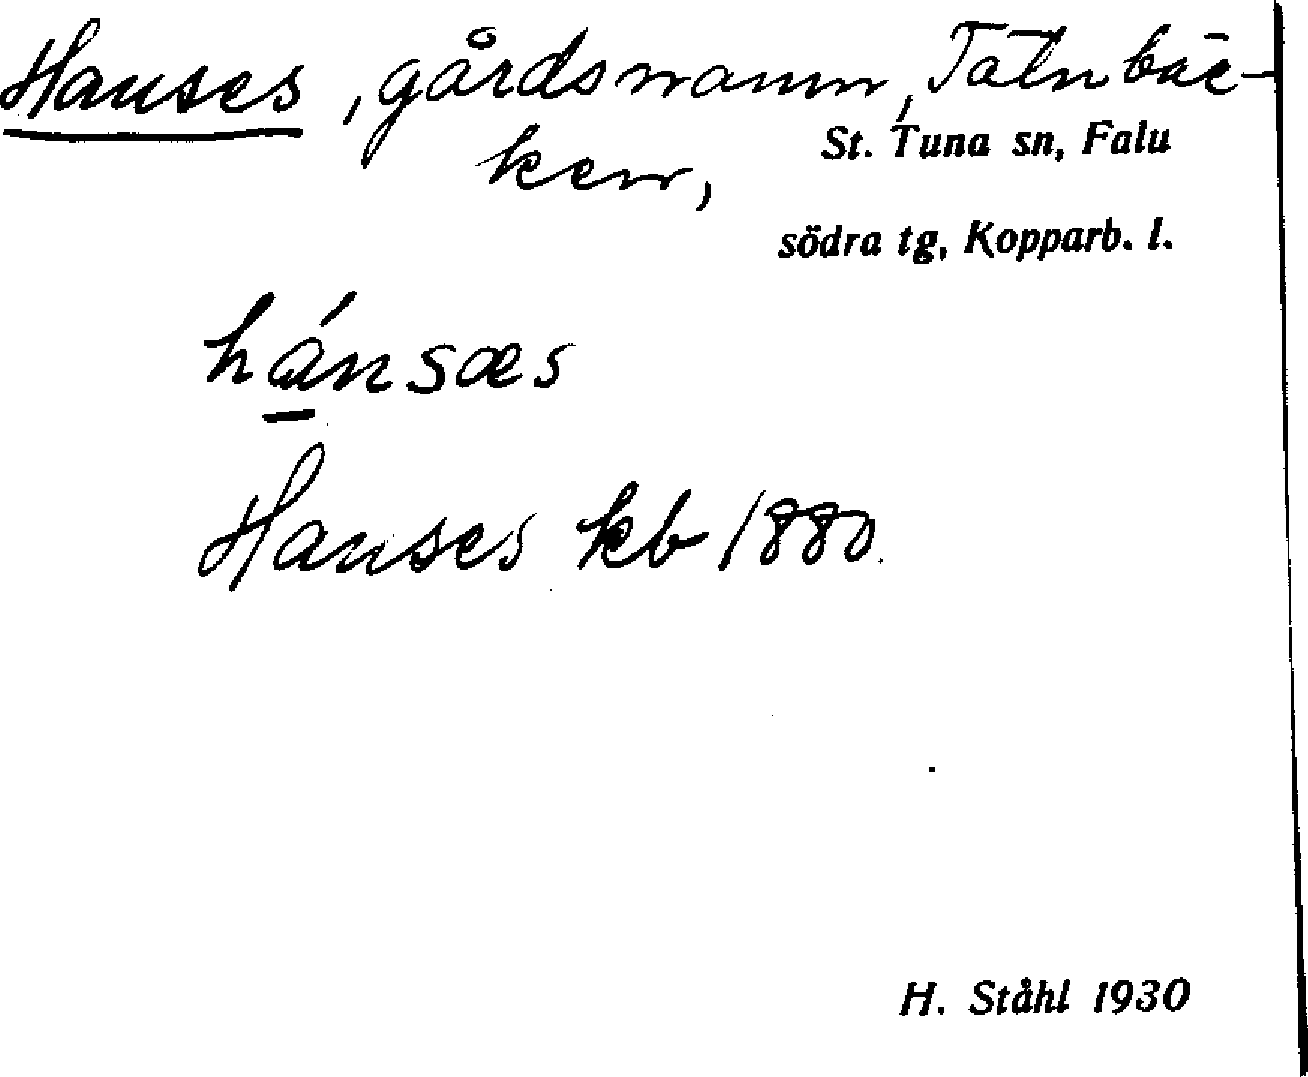 Hanses, gårdsnamn, Tälnbäc-
ken,
St. Tuna sn, Falu
södra tg, Kopparb. l.
hánsæs
Hanses kb 1880.
H. Ståhl 1930